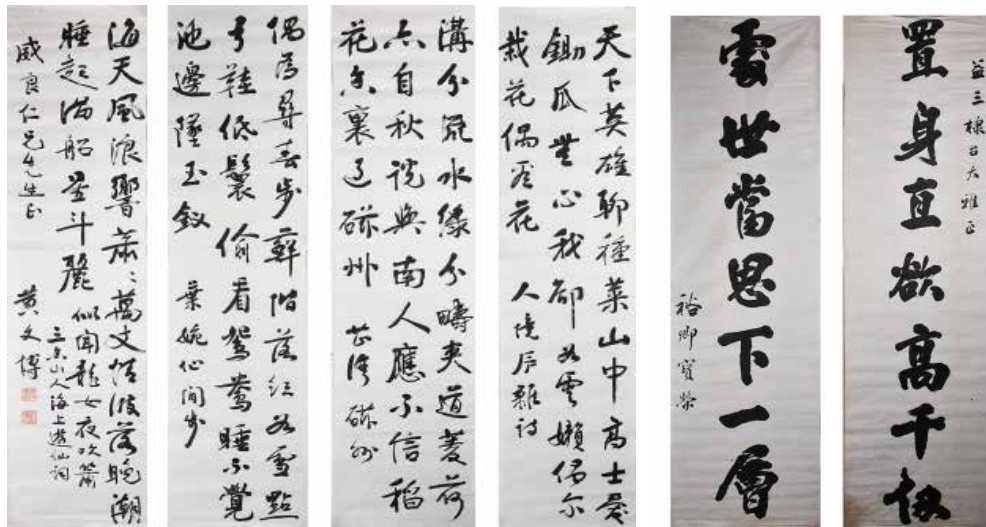 益三棣台大雅正
置身直欲高千仞
處世當思下一層
裕卿寶榮
天下英雄聊種菜山中高士愛
鋤瓜無心我卻如雲嬾偶尔
栽花偶看花 人境廬雜詩
溝分流水綠分疇夾道菱荷
亦自秋說與南人應不信稻
花香裏過磁州 磁州
偶爲尋春步蘚階落紅如雪點
弓鞋低鬟偷看鴛鴦睡不覺
池邊墜玉釵 葉婉仙閒步
海天風浪響蕭〻萬丈清波落晚潮
睡起滿船星斗麗 似聞龍女夜吹簫
山人海上遊仙詞
威良仁兄先生正 黃文博